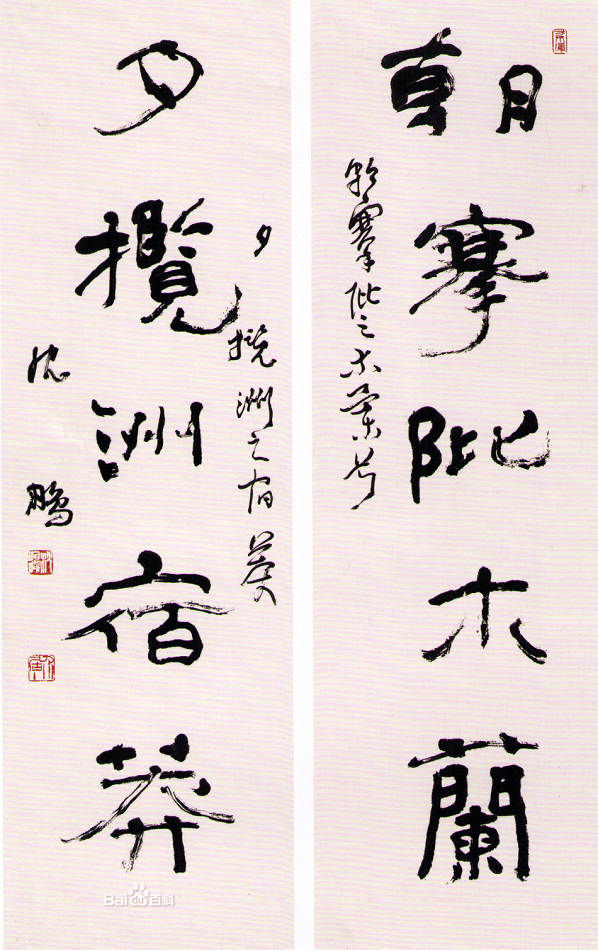 朝搴阰木蘭
朝搴阰之木蘭兮
夕攬洲宿莽
夕攬洲之宿莽
沈鵬
Baidu百科